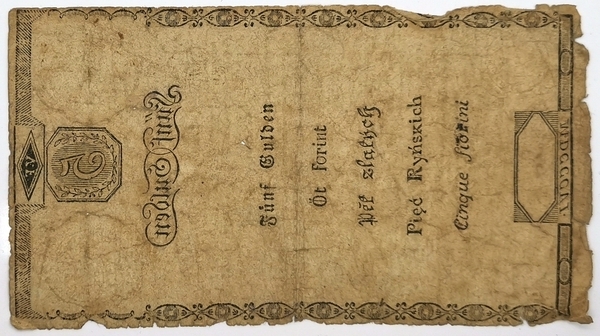 5
Fünf Gulden
Fünf Gulden
Öt forint
Pět zlatých
Pięć Ryńskich
Cinque fiorini